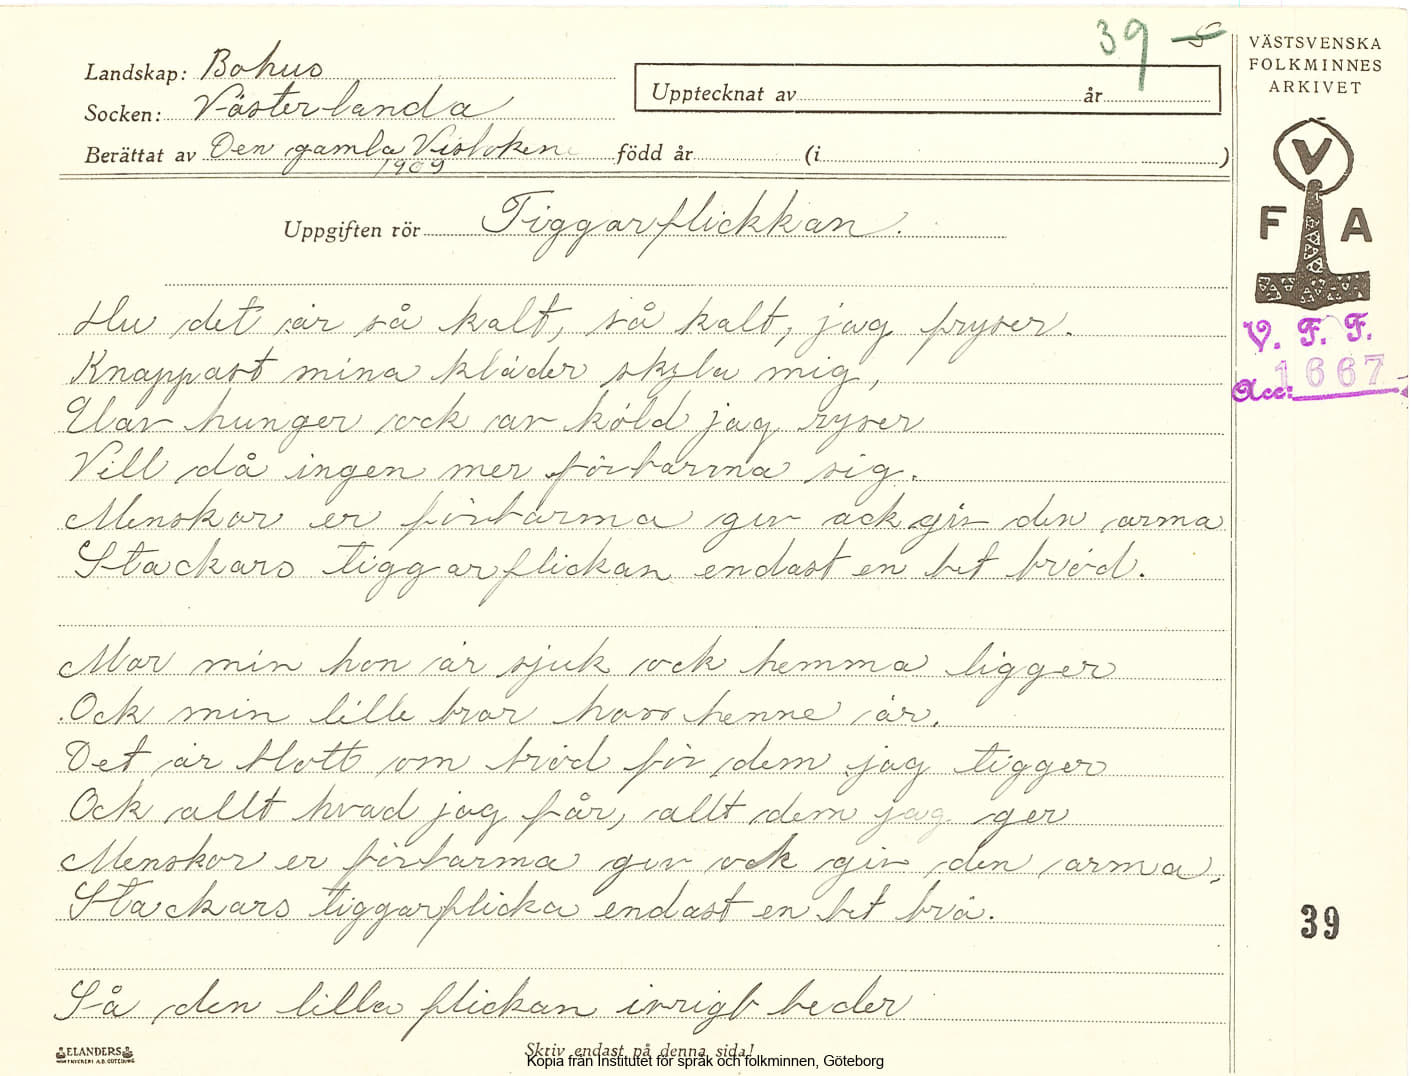 39
VÄSTSVENSKA
FOLKMINNES
ARKIVET
Landskap: Bohus
Socken: Västerlanda
Upptecknat av år
Berättat av Den gamla Visboken född år (i )
1909
Uppgiften rör Tiggarflickkan.
V
F A
V. F. F.
Acc: 1667
Hu det är så kalt, så kalt, jag fryser.
Knappast mina kläder skyla mig,
Utav hunger ock av köld jag ryser
Vill då ingen mer förbarma sig.
Menskor er förbarma gev ack giv den arma
Stackars tiggarflickan endast en bet bröd.
Mor min hon är sjuk ock hemma ligger
Ock min lille bror hoss henne är.
Det är blott om bröd för dem jag tigger
Ock allt hvad jag får, allt dem jag ger
Menskor er förbarma gev ock giv den arma,
Stackars tiggarflicka endast en bet brö.
39
Så den lilla flickan ivrigt beder
ELANDERS
Skriv endast på denna sida!
Kopia från Institutet för språk och folkminnen, Göteborg